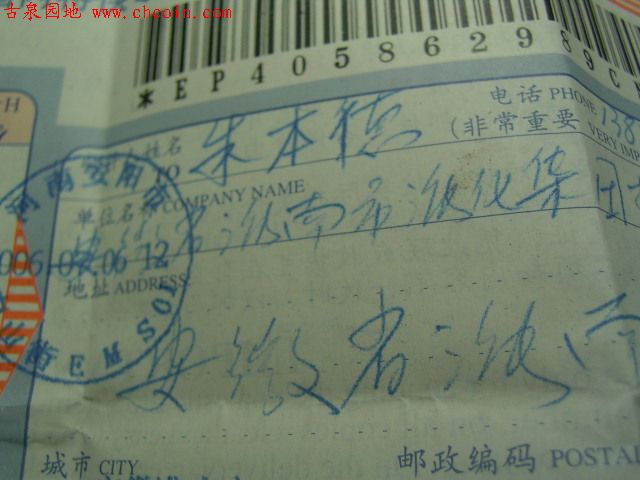 古泉园地 www.chcoin.com
*EP405862989C
电话 PHONE 138
(非常重要 VERY IMP
姓名 朱本德
TO
单位名称 COMPANY NAME
省淮南市淮化集团
2006 06 12
地址 ADDRESS
EMS
安徽省淮南
城市 CITY
邮政编码 POSTAL